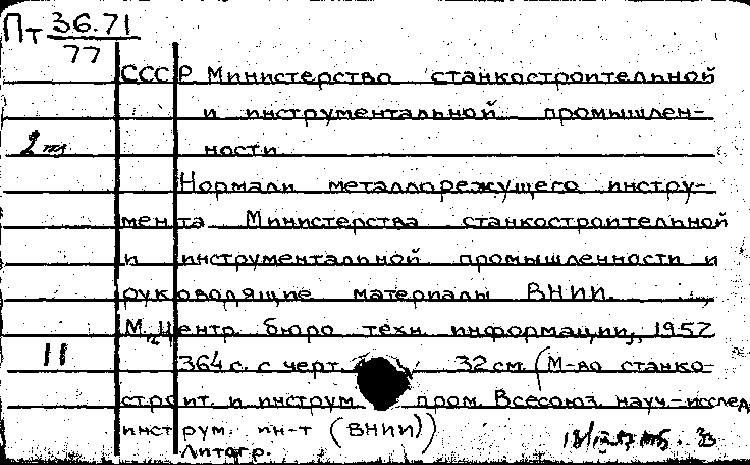 Пт 36.71
77
СССР Министерство станкостроительной
и инструментальной промышлен-
2
ности
Нормали металлорежущего инстру-
мента Министерства станкостроительной
и инструментальной промышленности и
руководящие материалы ВНИИ.
М., Центр. бюро техн. информации, 1957
11
364 с. с черт. 32 см. (М-во станко-
строит. и инструм. пром. Всесоюз. науч.-исслед.
инструм. ин-т (ВНИИ))
Литогр.